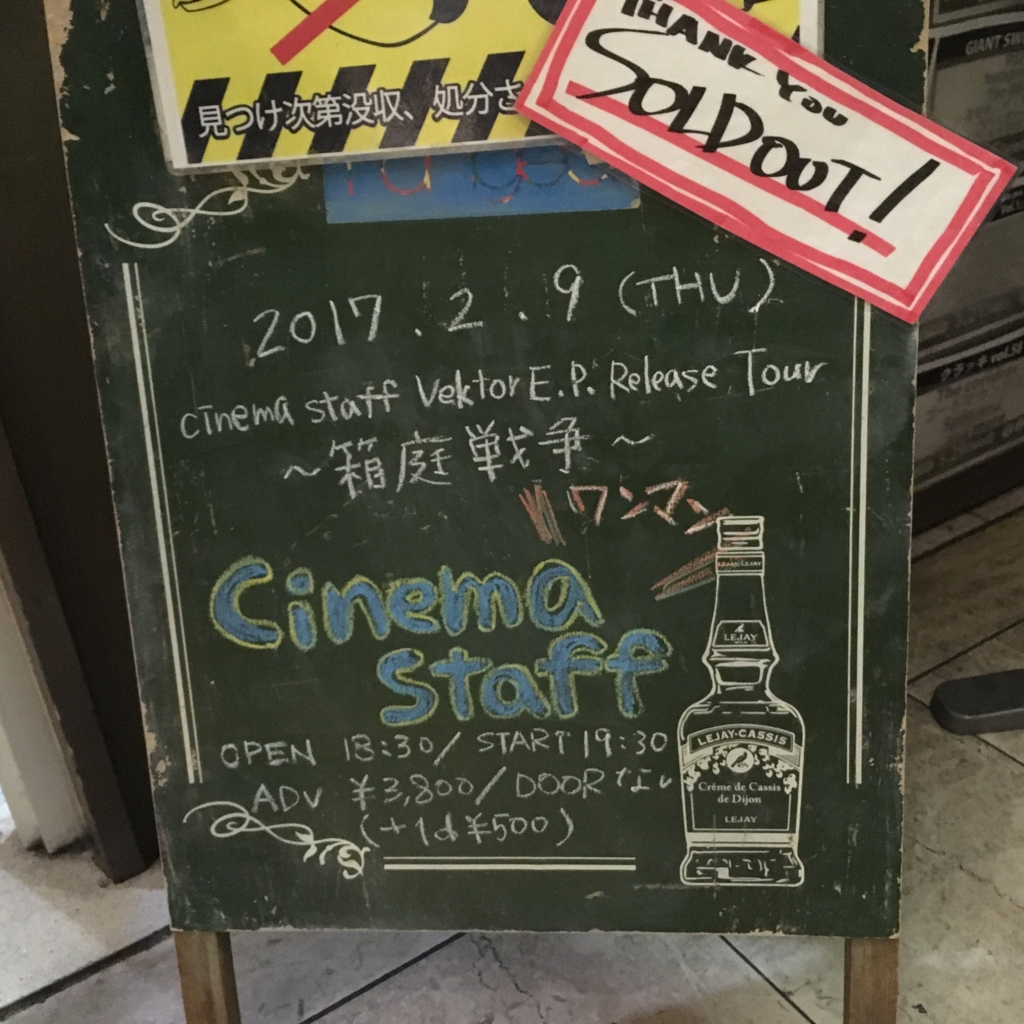 見つけ次第没収、処分さ
THANK YOU
SOLDOUT!
2017.2.9 (THU)
cinema staff Vektor E.P. Release Tour
～箱庭戦争～
ワンマン
Cinema
staff
OPEN 18:30/ START 19:30
ADV ¥3,800/DOOR なし
(+1d¥500)
LEJAY-LEJAY
LEJAY
LEJAY-CASSIS
Crème de Cassis
de Dijon
LEJAY
GIANT SW
クラッキ vol.5